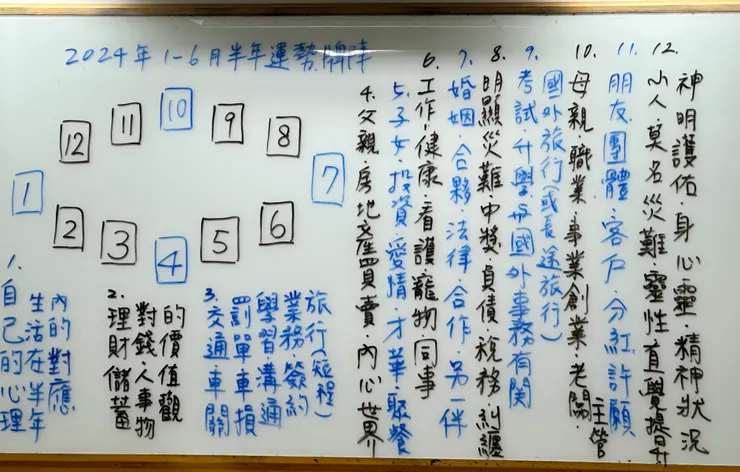 2024年1-6月半年運勢牌陣
1
2
3
4
5
6
7
8
9
10
11
12
1. 自己的心理
生活在半年
內的對應
2. 理財儲蓄
對錢·人事物
的價值觀
3. 交通車關
罰單車損
學習溝通
業務·簽約
旅行(短程)
4. 父親·房地產買賣·內心世界
5. 子女·投資·愛情·才華·聚餐
6. 工作·健康·看護寵物同事
7. 婚姻·合夥·法律·合作·另一伴
8. 明顯災難·中獎·負債·稅務·糾纏
9. 考試·升學与國外事務有関
國外旅行(或長途旅行)
10. 母親職業·事業創業·老闆·
主管
11. 朋友團體·客戶·分紅·許願
12. 小人·莫名災難·靈性直覺提升
神明護佑·身心靈·精神狀況